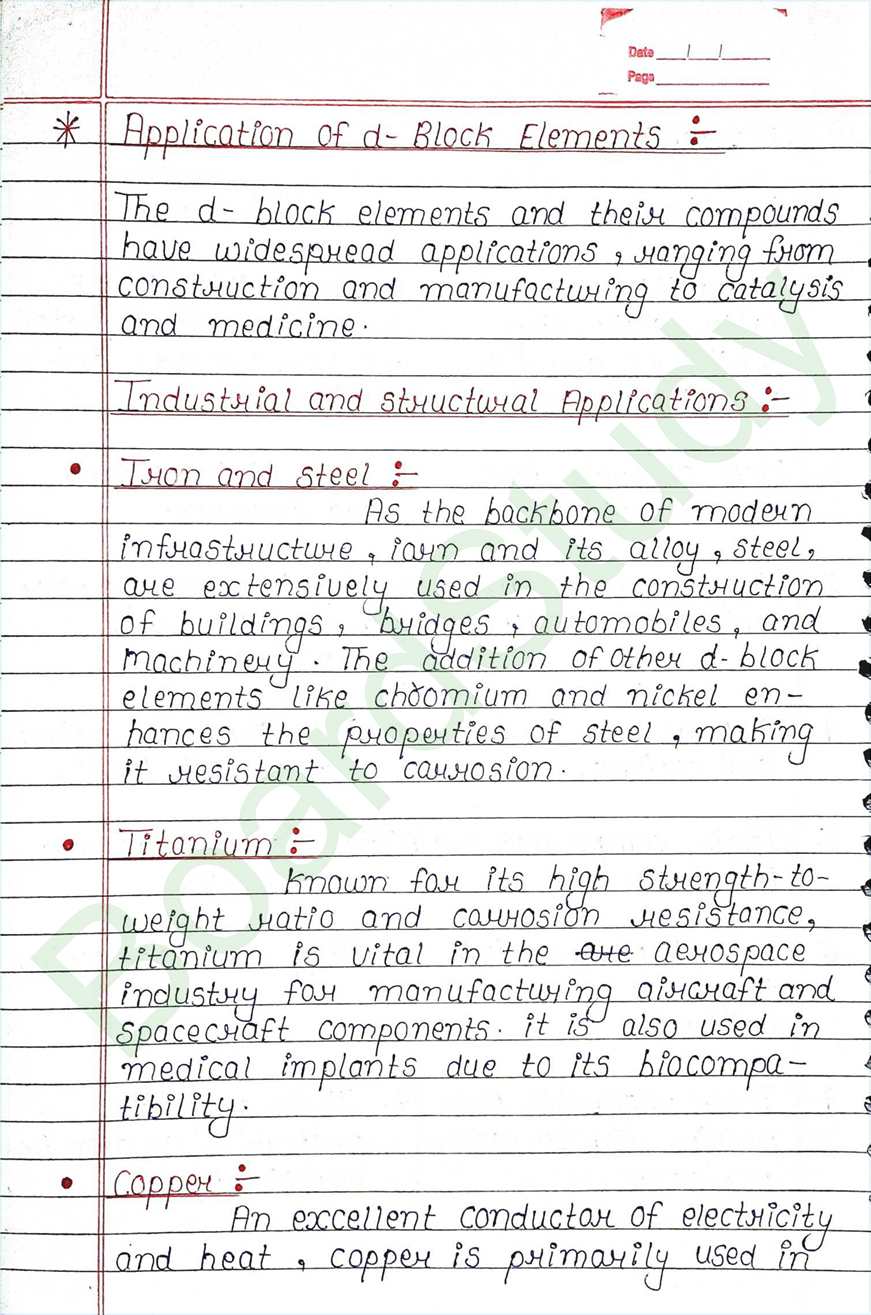 Date __/__/____
Page ________
* Application of d- Block Elements :-
The d- block elements and their compounds
have widespread applications, ranging from
construction and manufacturing to catalysis
and medicine.
Industrial and structural Applications :-
• Iron and steel :-
As the backbone of modern
infrastructure, iarn and its alloy, steel,
are extensively used in the construction
of buildings, bridges, automobiles, and
machinery. The addition of other d-block
elements like chromium and nickel en-
hances the properties of steel, making
it resistant to carrosion.
• Titanium :-
Known for its high strength-to-
weight ratio and carrosion resistance,
titanium is vital in the are aerospace
industry for manufacturing aircraft and
spacecraft components. it is also used in
medical implants due to its biocompa-
tibility.
• Copper :-
An excellent conductor of electricity
and heat, copper is primarily used in
BoardStudy